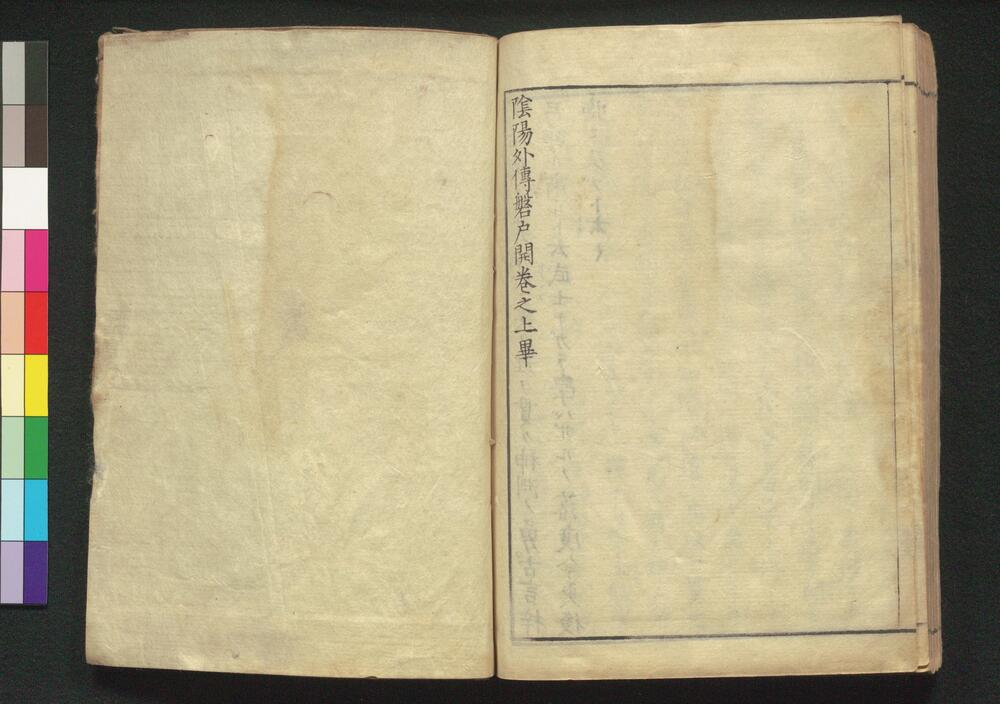 陰陽外傳磐戸開卷之上畢